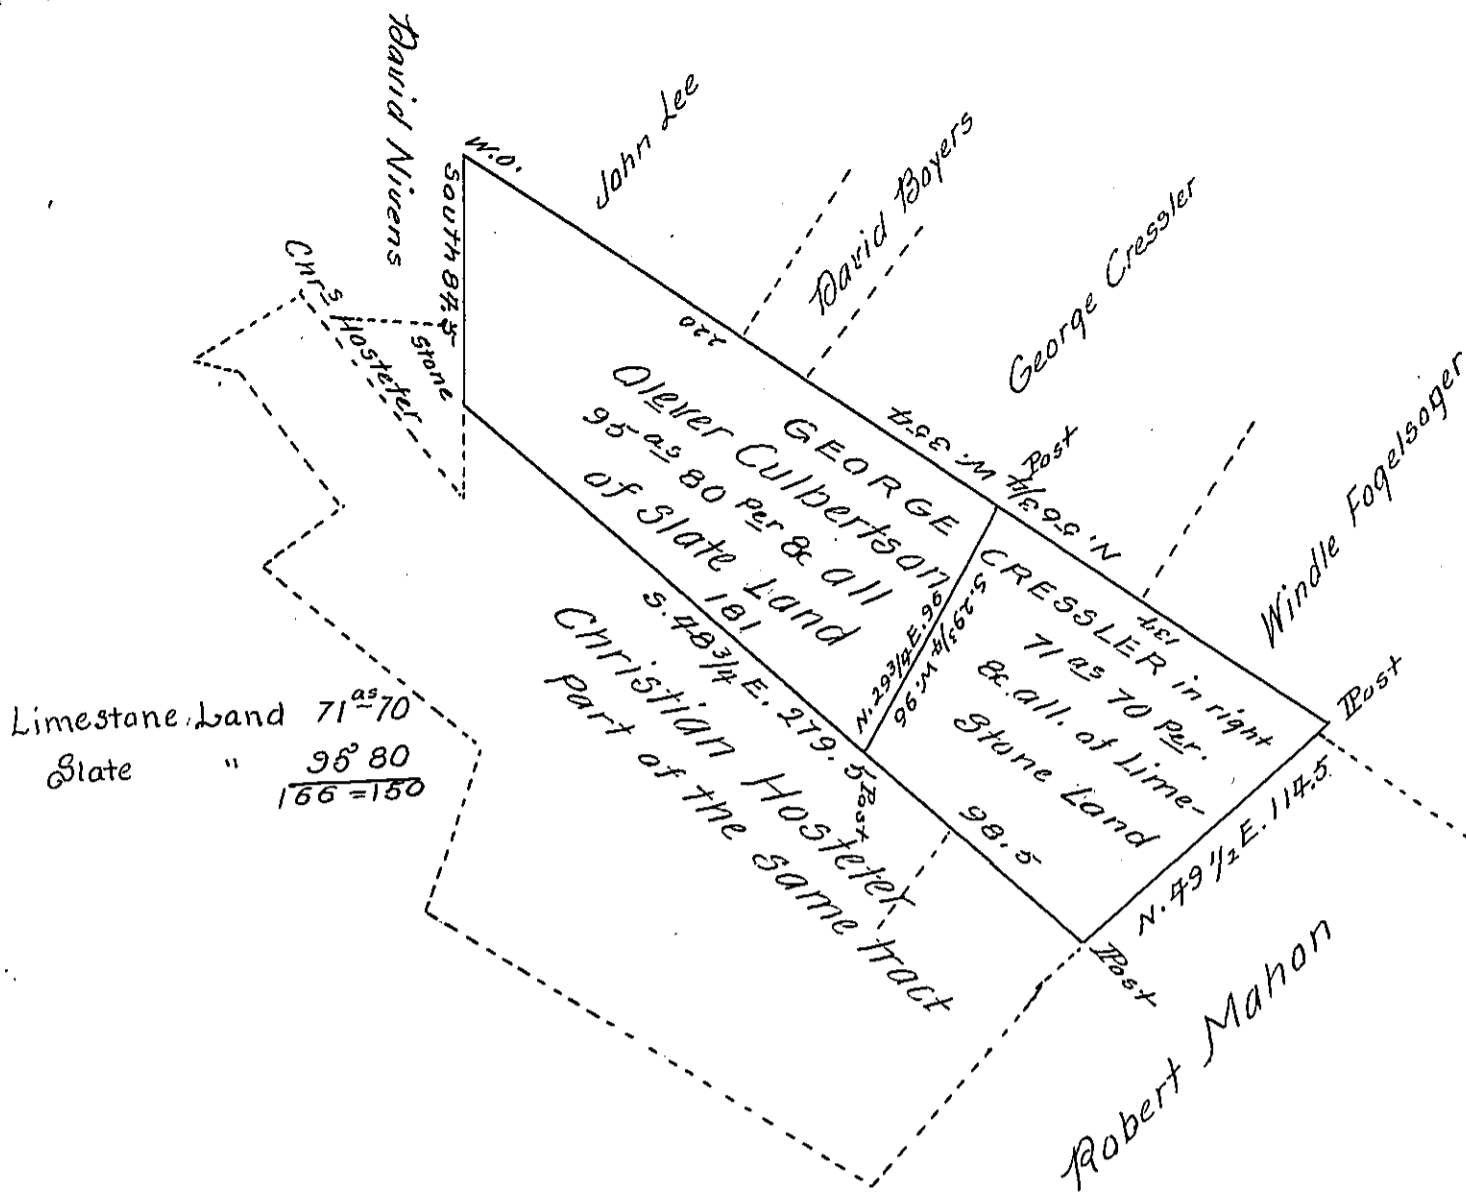 David Nivens
W.O.
John Lee
David Boyers
George Cressler
Windle Fogelsoger
South 84.5
Chrs Hosteter
Stone
220
N. 56 3/4 W. 354
Post
134
GEORGE CRESSLER in right
Olever Culbertson
95 as 80 Per & all
of Slate Land
181
71 as 70 Per.
&c. all. of Lime-
Stone Land
N. 29 3/4 E. 96
S. 29 3/4 W. 96
S. 48 3/4 E. 279.5
Post
98.5
Post
N. 49 1/2 E. 114.5
Post
Christian Hosteter
part of the same tract
Robert Mahon
Limestone Land 71 as 70
Slate " 95 80
166 = 150